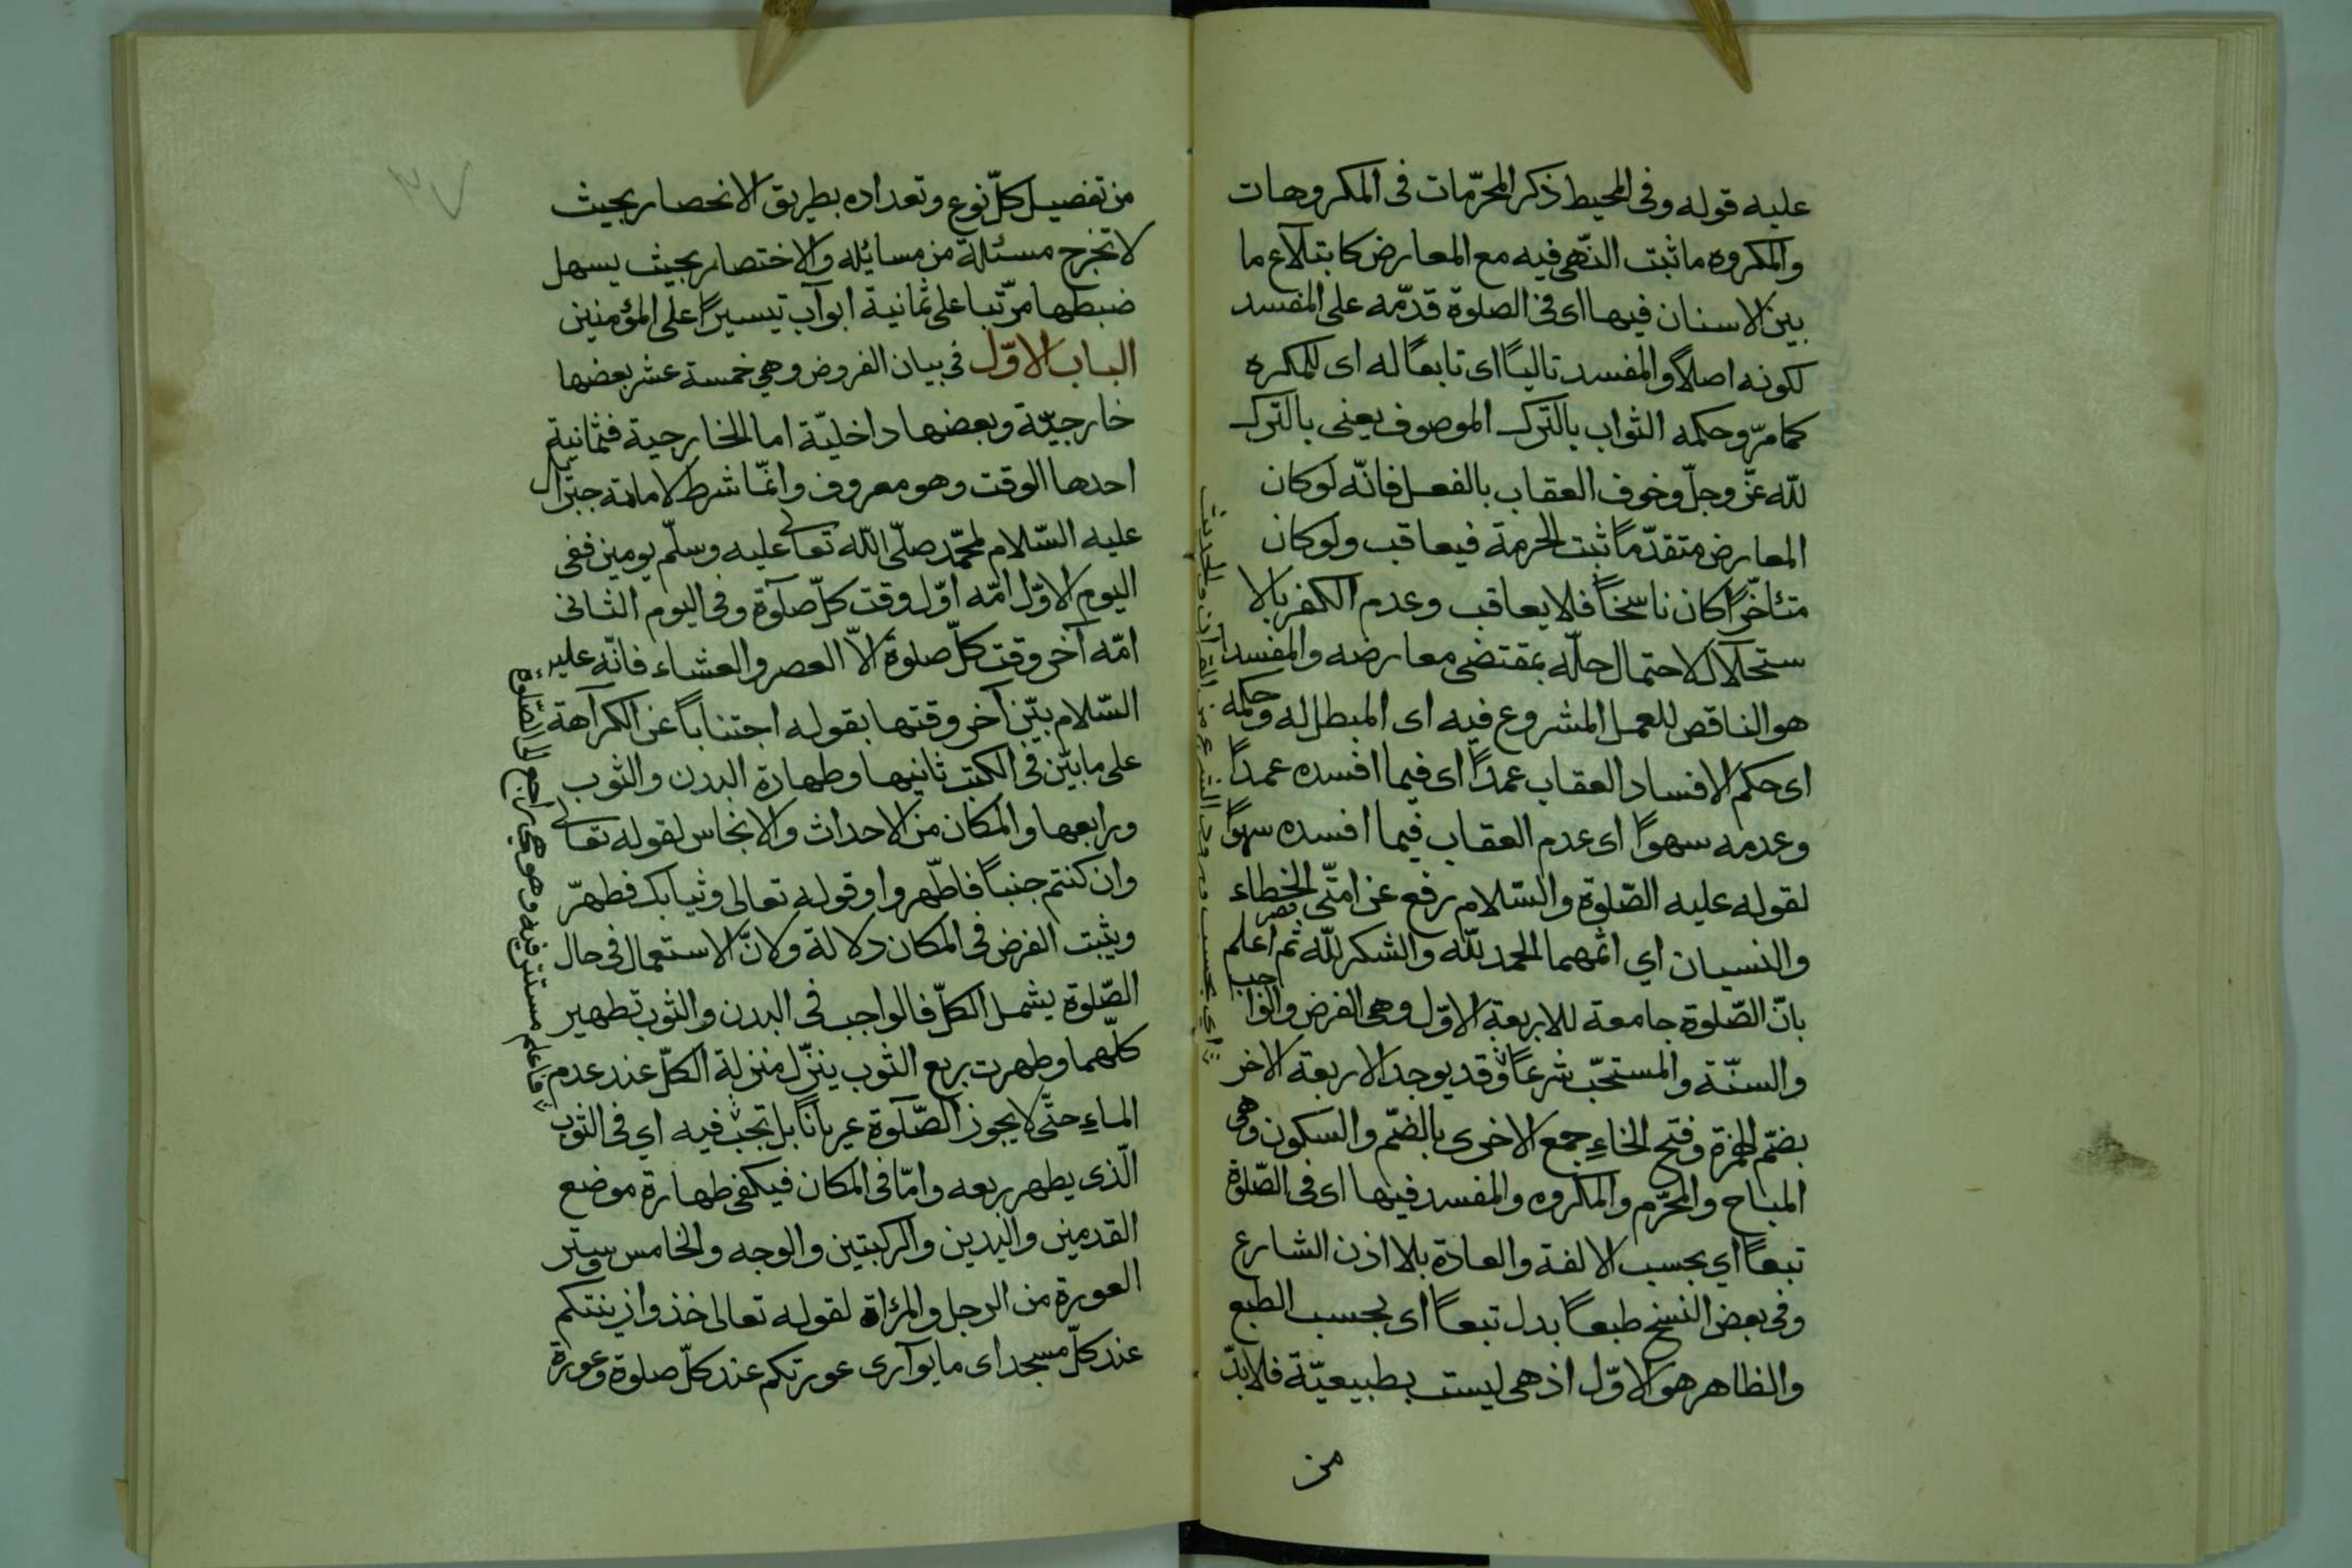 عليه قوله وفى المحيط ذكر المحرّمات فى المكروهات
والمكروه ما ثبت النّهى فيه مع المعارض كابتلاع ما
بين الاسنان فيها اى فى الصلوة قدّمه على المفسد
لكونه اصلاً والمفسد تاليًا اى تابعًا له اى للمكره
كما مرّ وحكمه الثواب بالتّرك الموصوف يعنى بالتّرك
للّه عزّ وجلّ وخوف العقاب بالفعل فانّه لو كان
المعارض متقدّمًا ثبت الحرمة فيعاقب ولو كان
متئاخّرًا كان ناسخًا فلا يعاقب وعدم الكفر بالا
ستحلال لاحتمال حلّه بمقتضى معارضه والمفسد
هو الناقص للعمل المشروع فيه اى المبطل له وحكمه
اى حكم الافساد العقاب عمدًا اى فيما افسده عمدًا
وعدمه سهوًا اى عدم العقاب فيما افسده سهوًا
لقوله عليه الصّلوة والسّلام رفع عن امّتى الخطاء
والنسيان اي اثمهما الحمد للّه والشكر للّه ثم اعلم
بانّ الصّلوة جامعة للاربعة الاوّل وهى الفرض والوا جب
والسنّة والمستحبّ شرعًا وقد يوجد الاربعة الاخر
بضمّ الهمزة وفتح الخاءِ جمع الاخرى بالضمّ والسكون وهى
المباح والمحرّم والمكروه والمفسد فيها اى فى الصّلوة
تبعًا اي بحسب الالفة والعادة بلا اذن الشارع
وفى بعض النسخ طبعًا بدل تبعًا اى بحسب الطبع
والظاهر هو الاوّل اذ هى ليست بطبيعيّة فلا بدّ
من
اي بحسب ورود الشرع من القرآن والحديث
من تفصيل كلّ نوع وتعداده بطريق الانحصار بحيث
لا تخرج مسئلة من مسائله والاختصار بحيث يسهل
ضبطها مرّتبا على ثمانية ابواب تيسيرًا على المؤمنين
الباب الاوّل فى بيان الفروض وهى خمسة عشر بعضها
خارجيّة وبعضها داخليّة اما الخارجية فثمانية
احدها الوقت وهو معروف وانّما شرط لامامة جبرائيل
عليه السّلام لمحمّد صلّى اللّه تعالى عليه وسلّم يومين ففى
اليوم الاوّل امّه اوّل وقت كلّ صلوة وفى اليوم الثانى
امّه آخر وقت كلّ صلوة الّا العصر والعشاء فانّه عليه
السّلام بيّن آخر وقتها بقوله اجتنابًا عن الكراهة
على ما بيّن فى الكتب ثانيها وطهارة البدن والثوب
ورابعها والمكان من الاحداث والانجاس لقوله تعالى
وان كنتم جنبًا فاطّهروا وقوله تعالى وثيابك فطهّر
ويثبت الفرض فى المكان دلالة ولانّ الاستعمال فى حال
الصّلوة يشمل الكلّ فالواجب فى البدن والثوب تطهير
كلّهما وطهرت بربع الثوب ينزّل منزلة الكلّ عند عدم
الماءِ حتّى لا يجوز الصّلوة عريانًا بل تجب فيه اي فى الثوب
الّذى يطهر ربعه وامّا فى المكان فيكفى طهارة موضع
القدمين واليدين والركبتين والوجه والخامس وستر
العورة من الرجل والمرأة لقوله تعالى خذوا زينتكم
عند كلّ مسجد اى ما يوارى عورتكم عند كلّ صلوة وعورة
فاعلم مستتر فيه وهو راجع الى الصّلوة